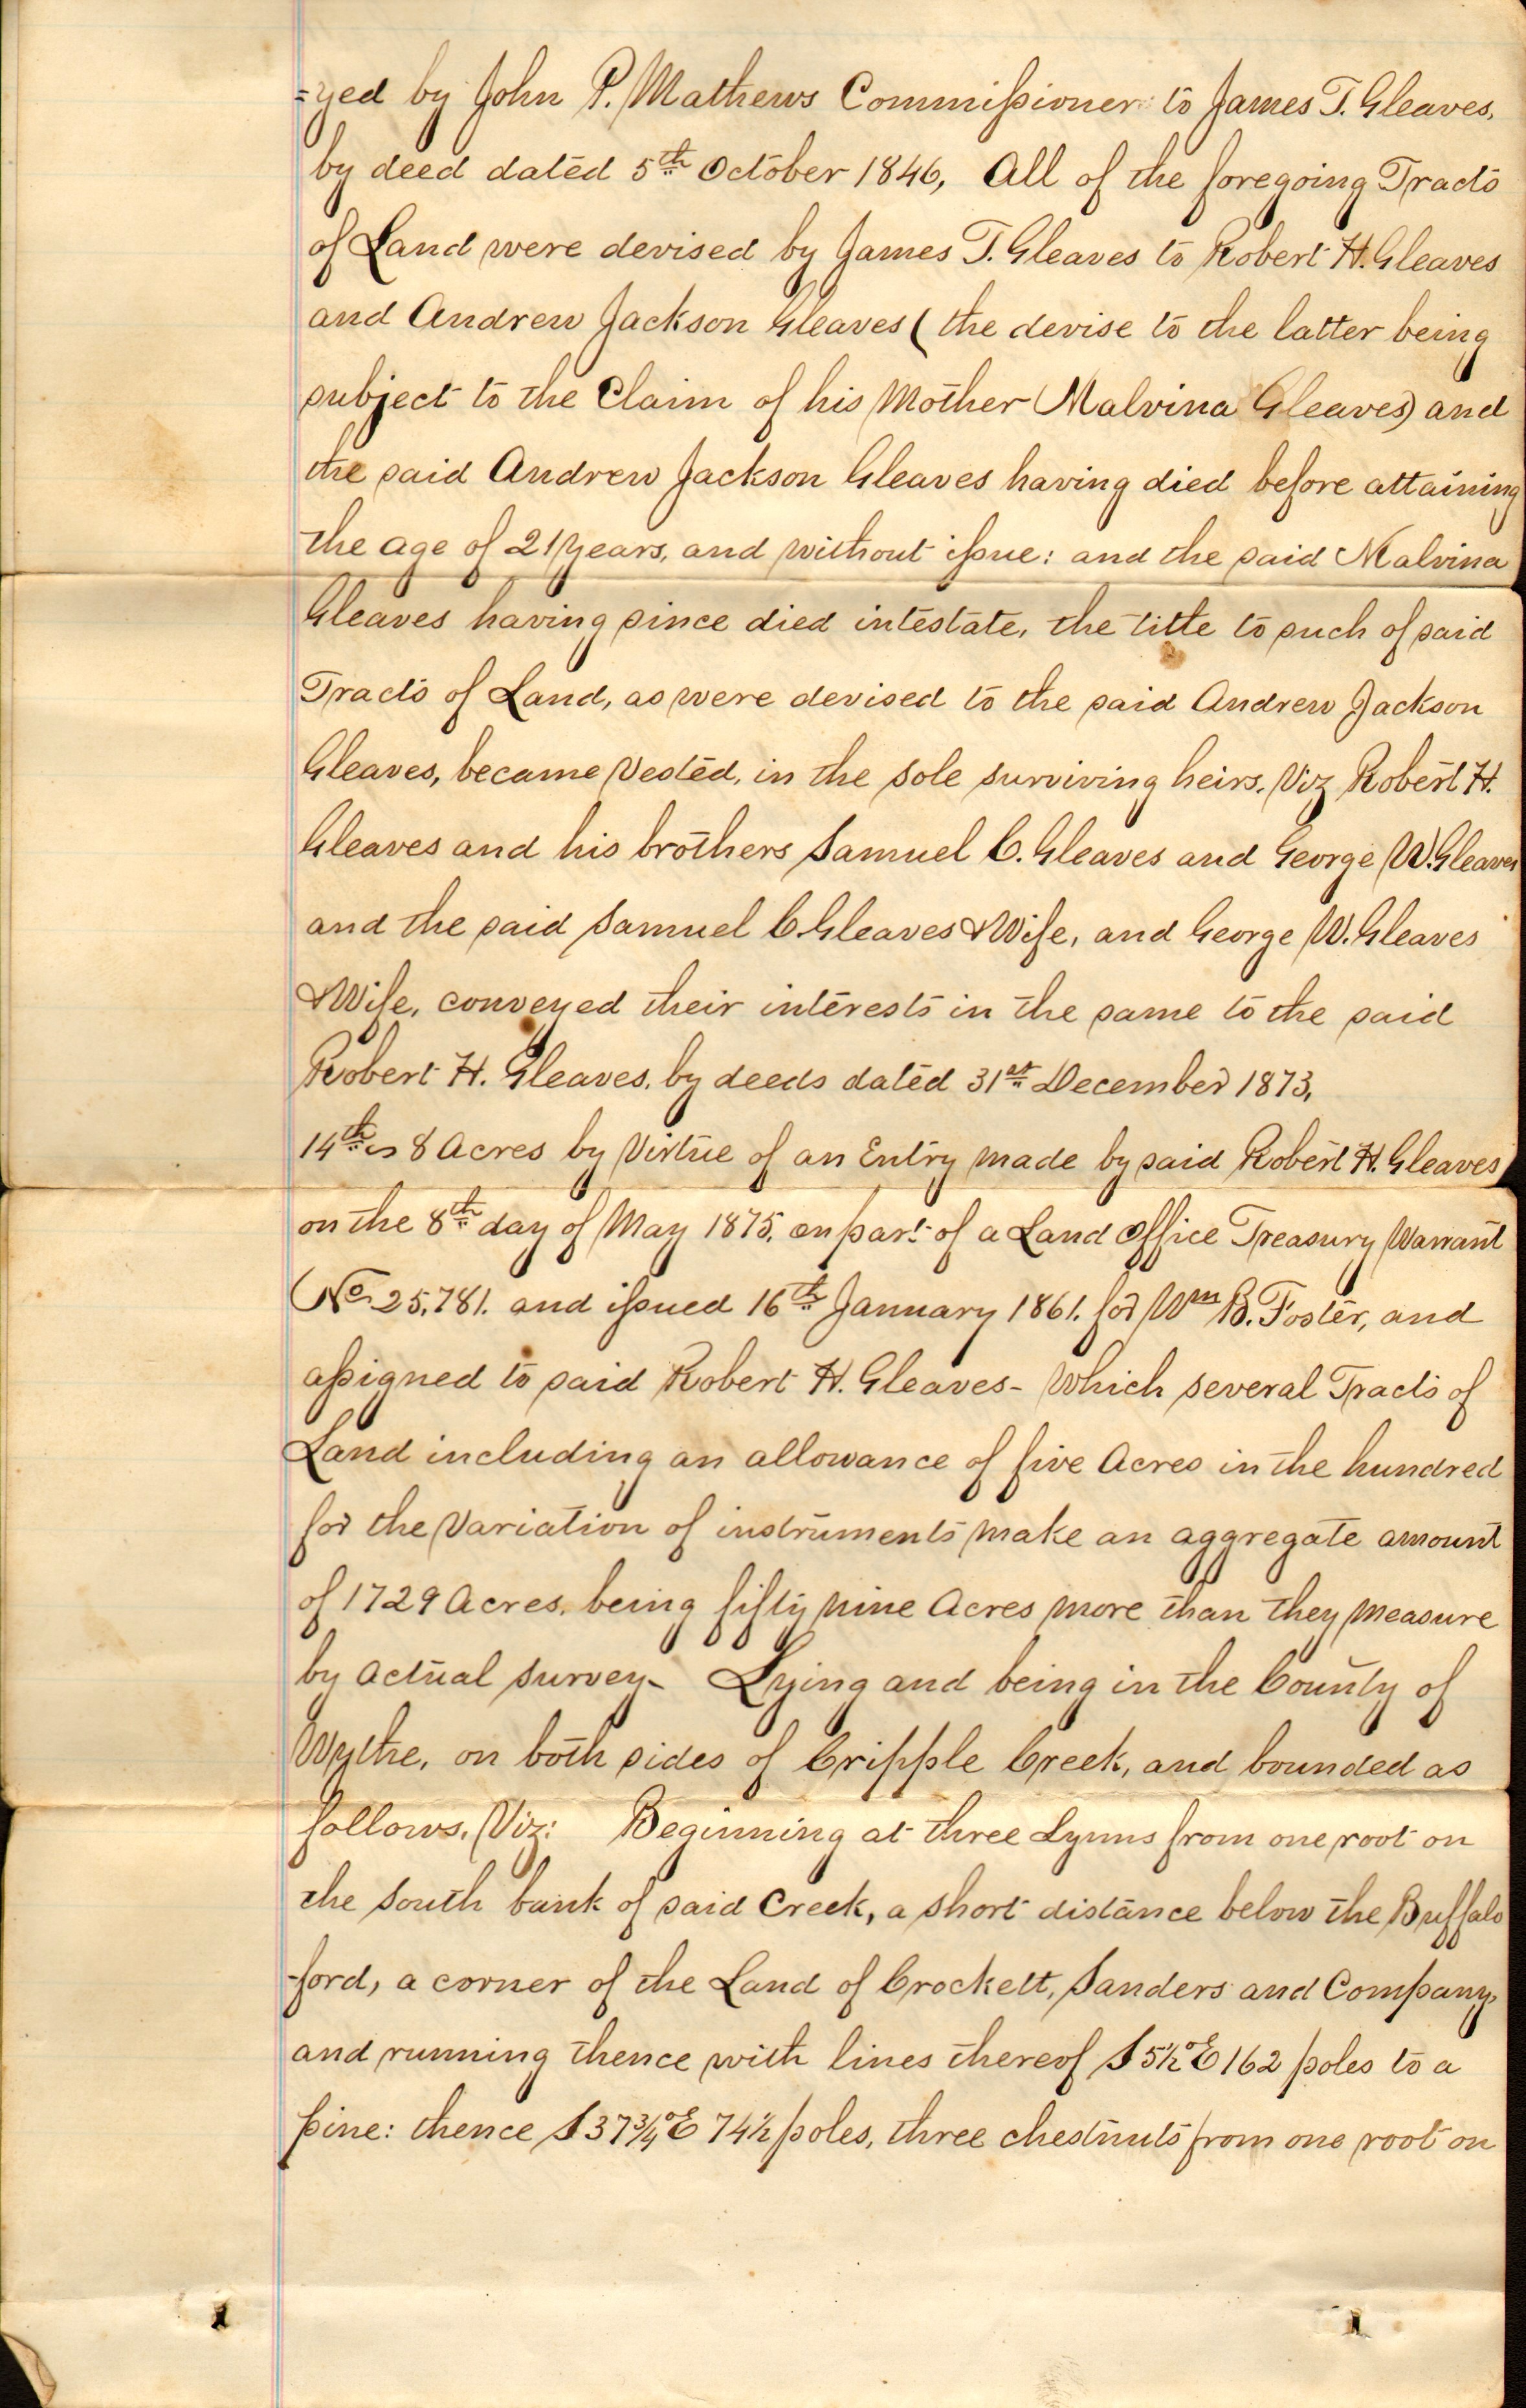 =yed by John P. Mathews Commissioner to James T. Gleaves,
by deed dated 5th October 1846, All of the foregoing Tracts
of Land were devised by James T. Gleaves to Robert H. Gleaves
and Andrew Jackson Gleaves (the devise to the latter being
subject to the Claim of his Mother Malvina Gleaves) and
the said Andrew Jackson Gleaves having died before attaining
the age of 21 years, and without issue: and the said Malvina
Gleaves having since died intestate, the title to such of said
Tracts of Land, as were devised to the said Andrew Jackson
Gleaves, became Vested, in the sole surviving heirs, Viz Robert H.
Gleaves and his brothers Samuel C. Gleaves and George W. Gleaves
and the said Samuel C. Gleaves & Wife, and George W. Gleaves
& Wife, conveyed their interests in the same to the said
Robert H. Gleaves, by deeds dated 31st December 1873,
14th is 8 Acres by Virtue of an Entry made by said Robert H. Gleaves
on the 8th day of May 1875, on part of a Land Office Treasury Warrant
No 25,781. and issued 16th January 1861. for Wm B. Foster, and
assigned to said Robert H. Gleaves - Which several Tracts of
Land including an allowance of five Acres in the hundred
for the Variation of instruments make an aggregate amount
of 1729 Acres, being fifty nine Acres more than they measure
by actual survey - Lying and being in the County of
Wythe, on both sides of Cripple Creek, and bounded as
follows, Viz: Beginning at three Lynns from one root on
the South bank of said Creek, a short distance below the Buffalo
-ford, a corner of the Land of Crockett, Sanders and Company,
and running thence with lines thereof S 5½° E 162 poles to a
pine: thence S 37¾° E 74½ poles, three chestnuts from one root on